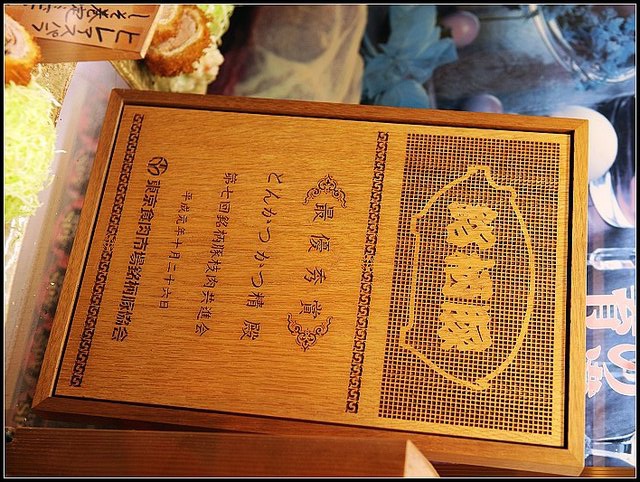 銘柄豚
最優秀賞
とんかつかつ精 殿
第七回銘柄豚枝肉共進会
平成元年十月二十六日
東京食肉市場銘柄豚協会
ヒレアスパラ
しそ巻